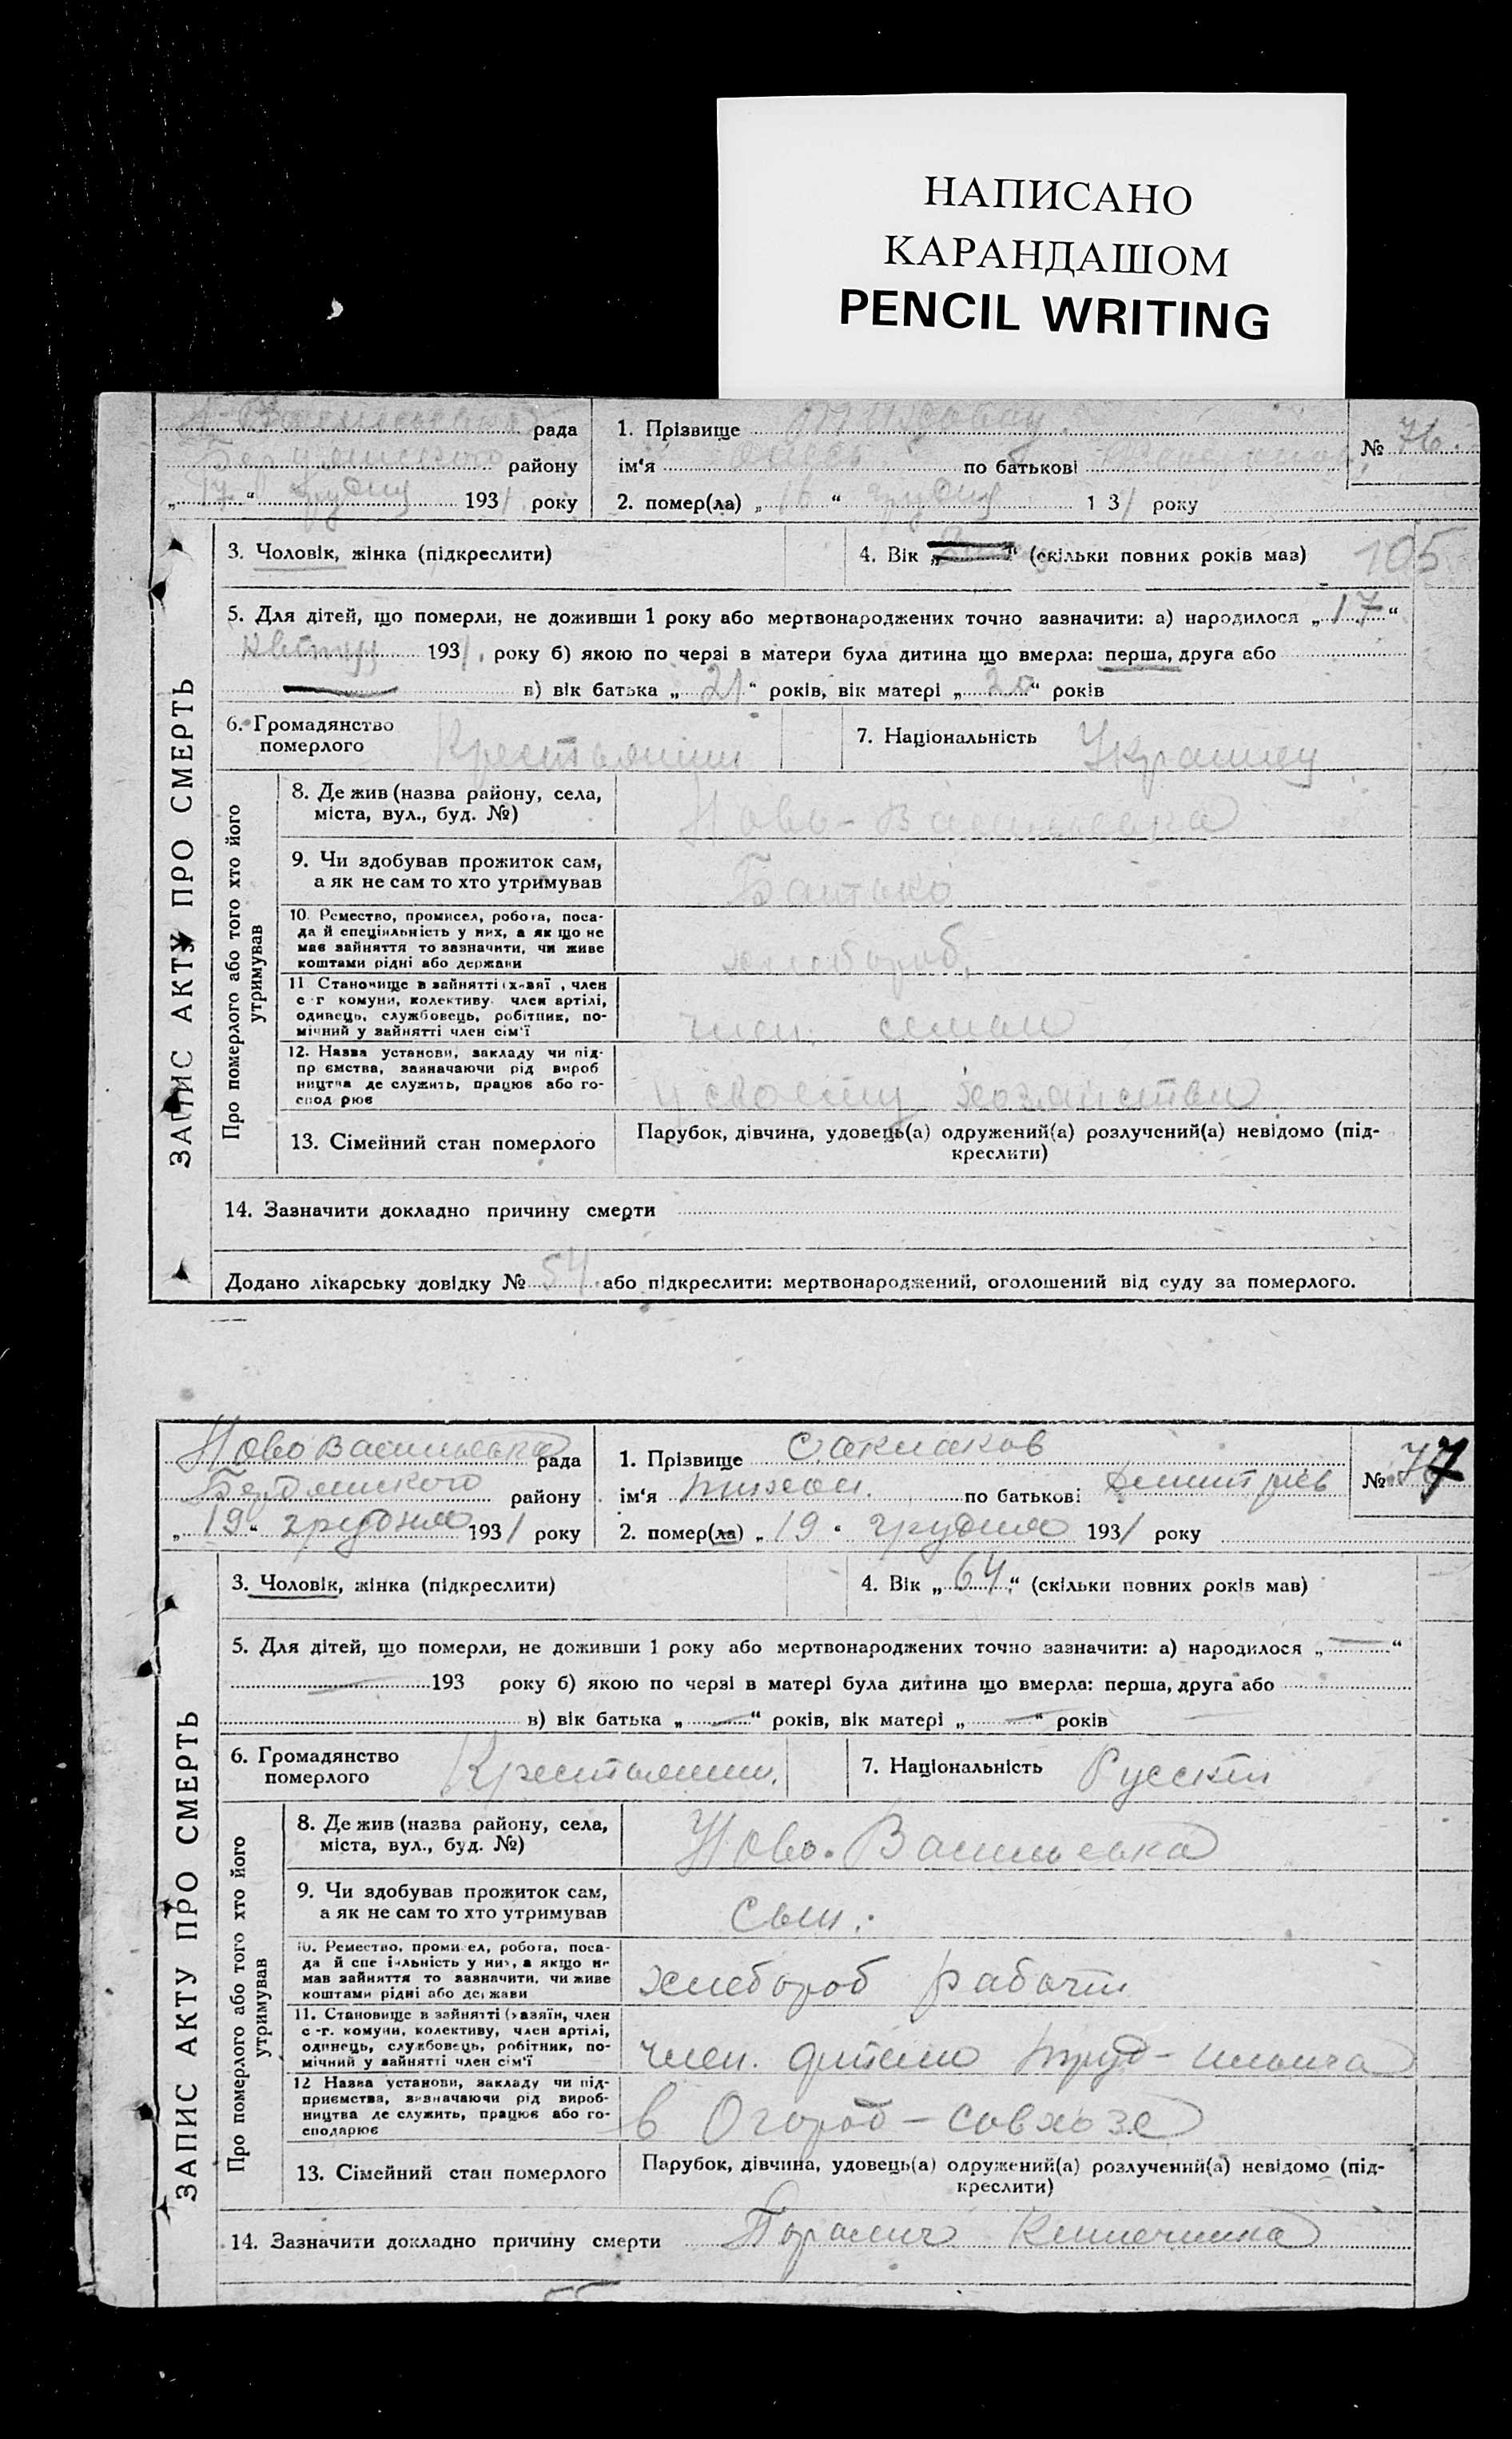 НАПИСАНО
КАРАНДАШОМ
PENCIL WRITING
рада
району
„17“ грудня 1931 року
1. Прізвище
ім'я по батькові
2. помер(ла) „16“ грудня 1 31 року
№ 76.
3. Чоловік, жінка (підкреслити)
4. Вік „ “ (скільки повних років маз)
105
5. Для дітей, що померли, не доживши 1 року або мертвонароджених точно зазначити: а) народилося „17“
1931, року б) якою по черзі в матери була дитина що вмерла: перша, друга або
в) вік батька „21“ років, вік матері „20“ років
6. Громадянство померлого
7. Національність
ЗАПИС АКТУ ПРО СМЕРТЬ
Про померлого або того хто його утримував
8. Де жив (назва району, села,
міста, вул., буд. №)
Ново-Васильевка
9. Чи здобував прожиток сам,
а як не сам то хто утримував
Батько
10. Ремество, промисел, робота, поса-
да й спеціяльність у них, а як що не
має зайняття то зазначити, чи живе
коштами рідні або держави
хлебороб.
11 Становище в зайнятті , член
с -г комуни, колективу. член артілі,
одинець, службовець, робітник, по-
мічний у зайнятті член сім'ї
член семьи
12. Назва установи, закладу чи під-
пр ємства, зазначаючи рід вироб
ництва де служить, працює або го-
спод рює
13. Сімейний стан померлого
Парубок, дівчина, удовець(а) одружений(а) розлучений(а) невідомо (під-
креслити)
14. Зазначити докладно причину смерти
Додано лікарську довідку № 54 або підкреслити: мертвонароджений, оголошений від суду за померлого.
Ново Васильевка рада
Бердянского району
„19“ грудня 1931 року
1. Прізвище
ім'я Тихон. по батькові Дмитриев
2. помер(ла) „19“ грудня 1931 року
№ 77
3. Чоловік, жінка (підкреслити)
4. Вік „64“ (скільки повних років мав)
5. Для дітей, що померли, не доживши 1 року або мертвонароджених точно зазначити: а) народилося „—“
193 року б) якою по черзі в матері була дитина що вмерла: перша, друга або
в) вік батька „—“ років, вік матері „—“ років
6. Громадянство померлого
Крестьянин.
7. Національність
ЗАПИС АКТУ ПРО СМЕРТЬ
Про померлого або того хто його утримував
8. Де жив (назва району, села,
міста, вул., буд. №)
Ново-Васильевка
9. Чи здобував прожиток сам,
а як не сам то хто утримував
Сын.
10. Ремество, проми ел, робота, поса-
да й спе іяльність у них, а якщо не
мав зайняття то зазначити, чи живе
коштами рідні або держави
хлебороб
11. Становище в зайнятті (хазяїн, член
с -г. комуни, колективу, член артілі,
одинець, службовець, робітник, по-
мічний у зайнятті член сім'ї
член.
12 Назва установи, закладу чи під-
приємства, зазначаючи рід вироб-
ництва де служить, працює або го-
сподарює
в Огород-совхозе
13. Сімейний стан померлого
Парубок, дівчина, удовець(а) одружений(а) розлучений(а) невідомо (під-
креслити)
14. Зазначити докладно причину смерти